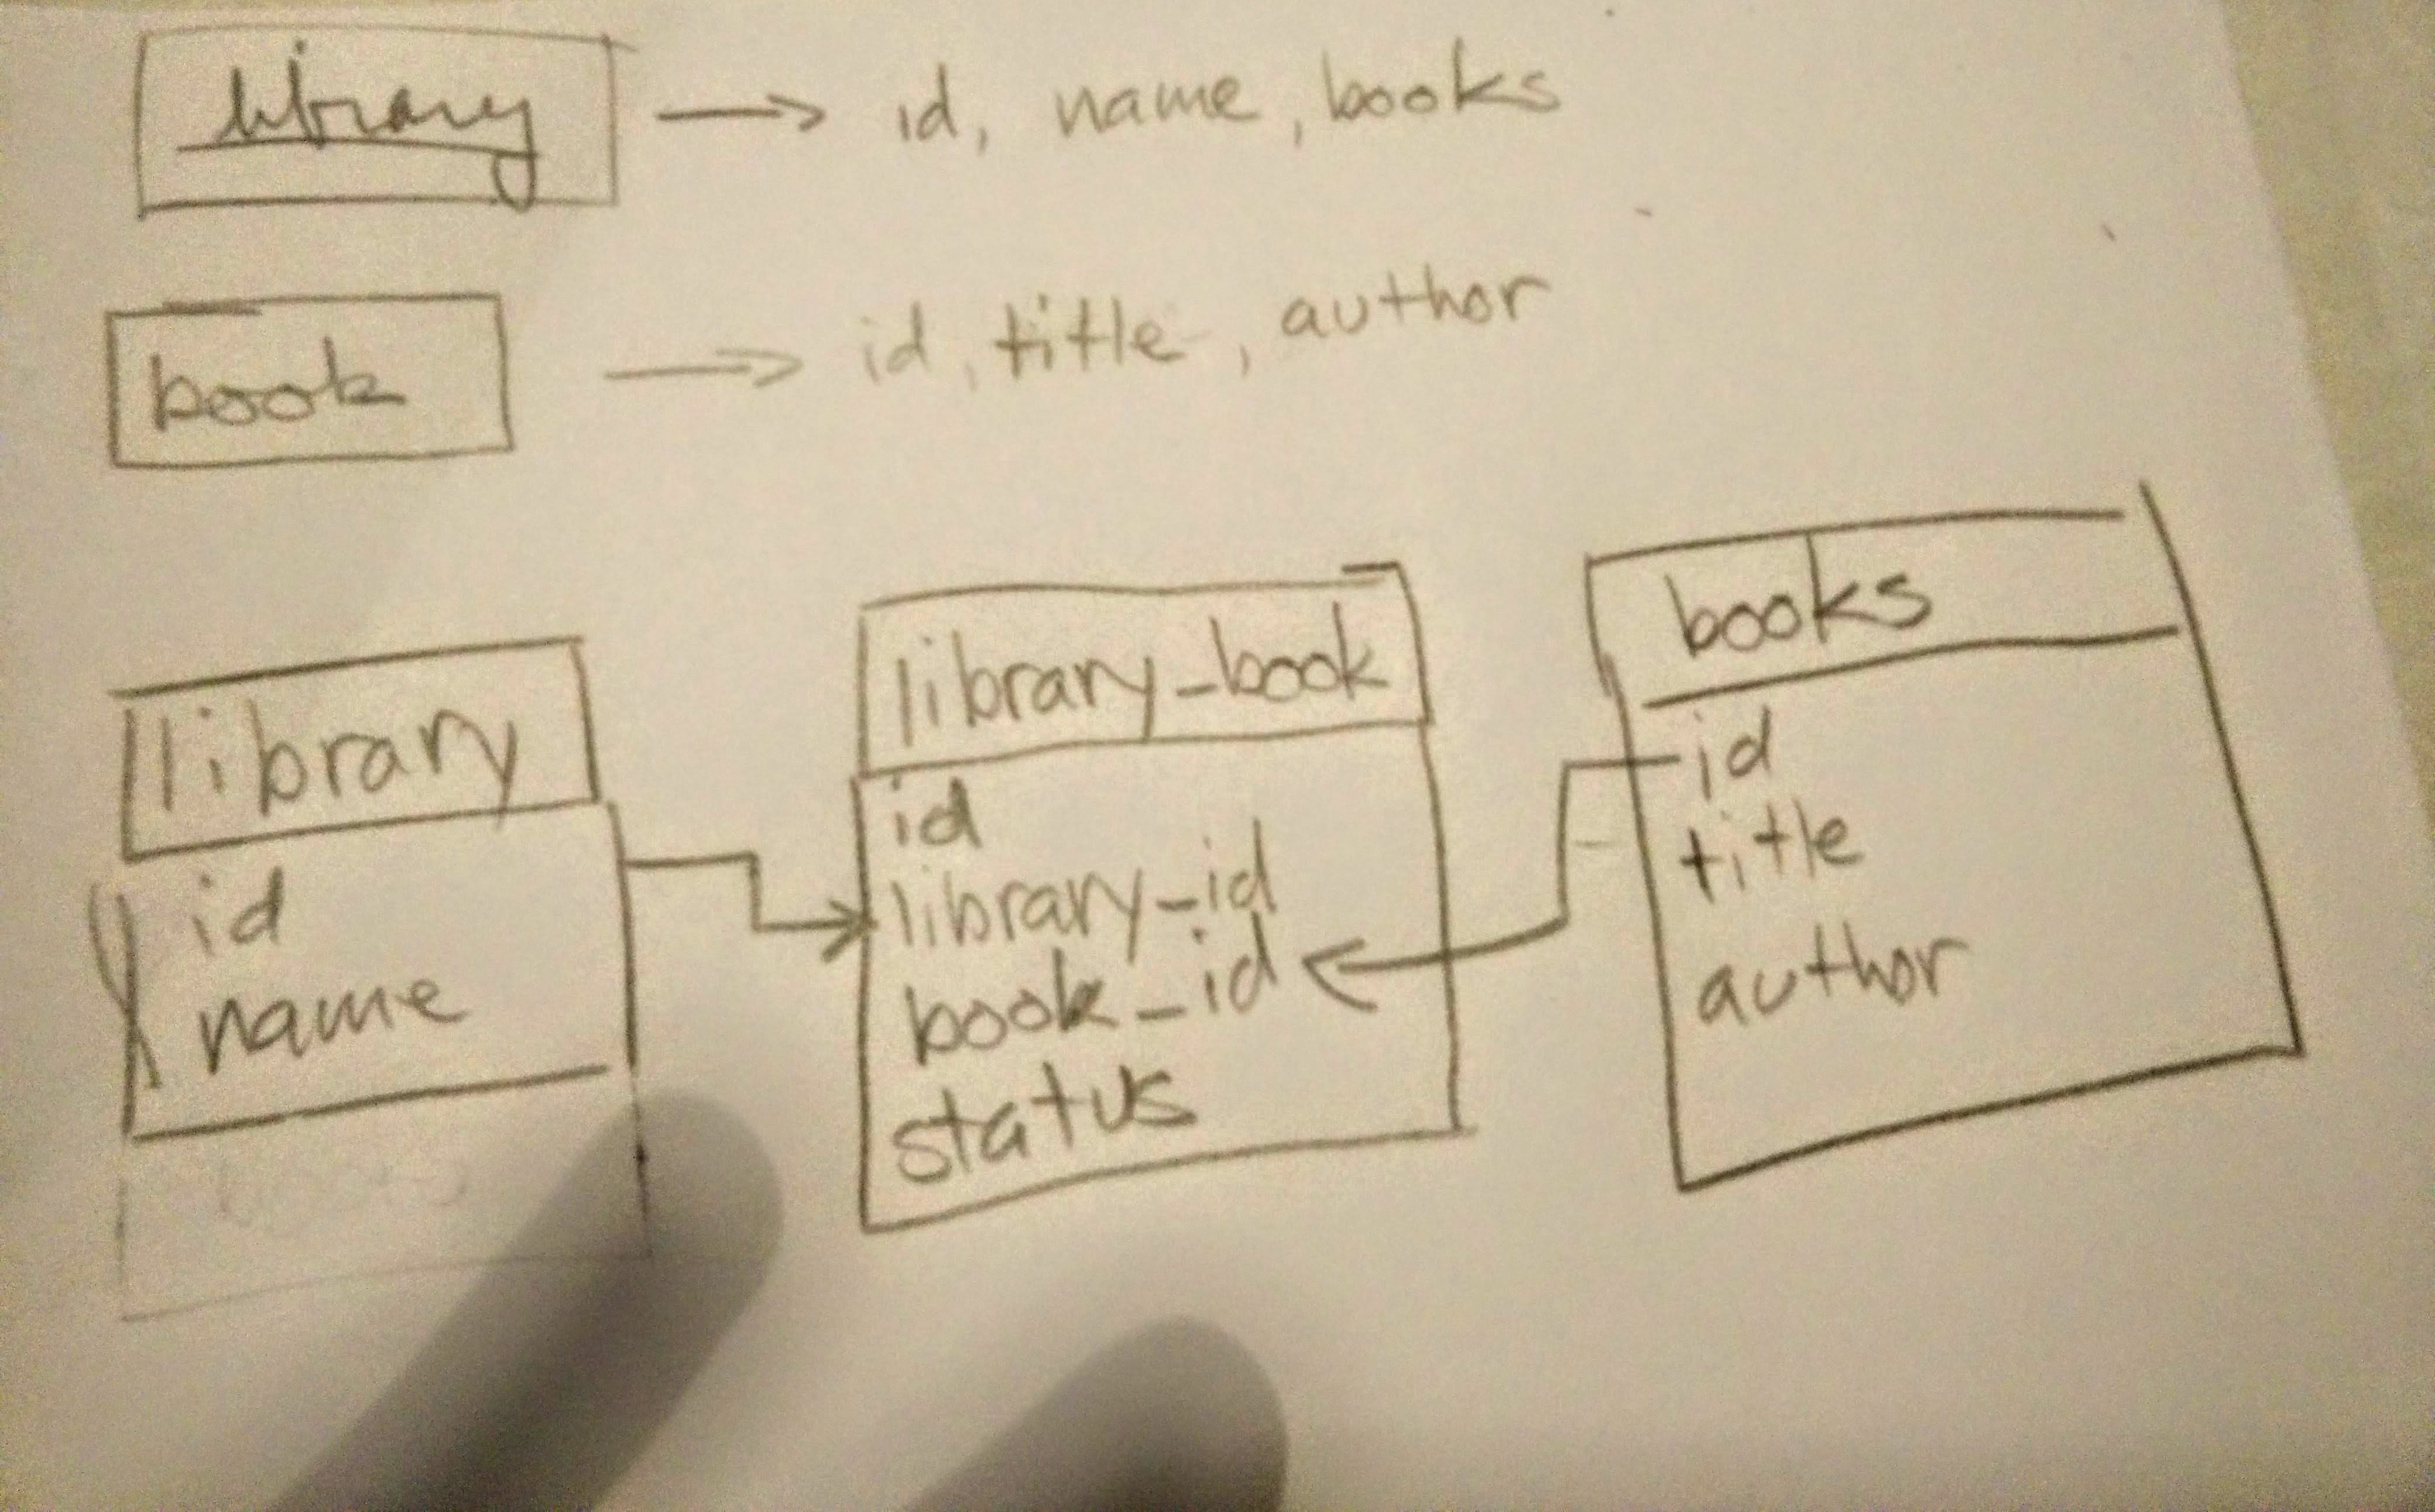 library → id, name, books
book → id, title, author
library
id
name
library_book
id
library_id
book_id
status
books
id
title
author